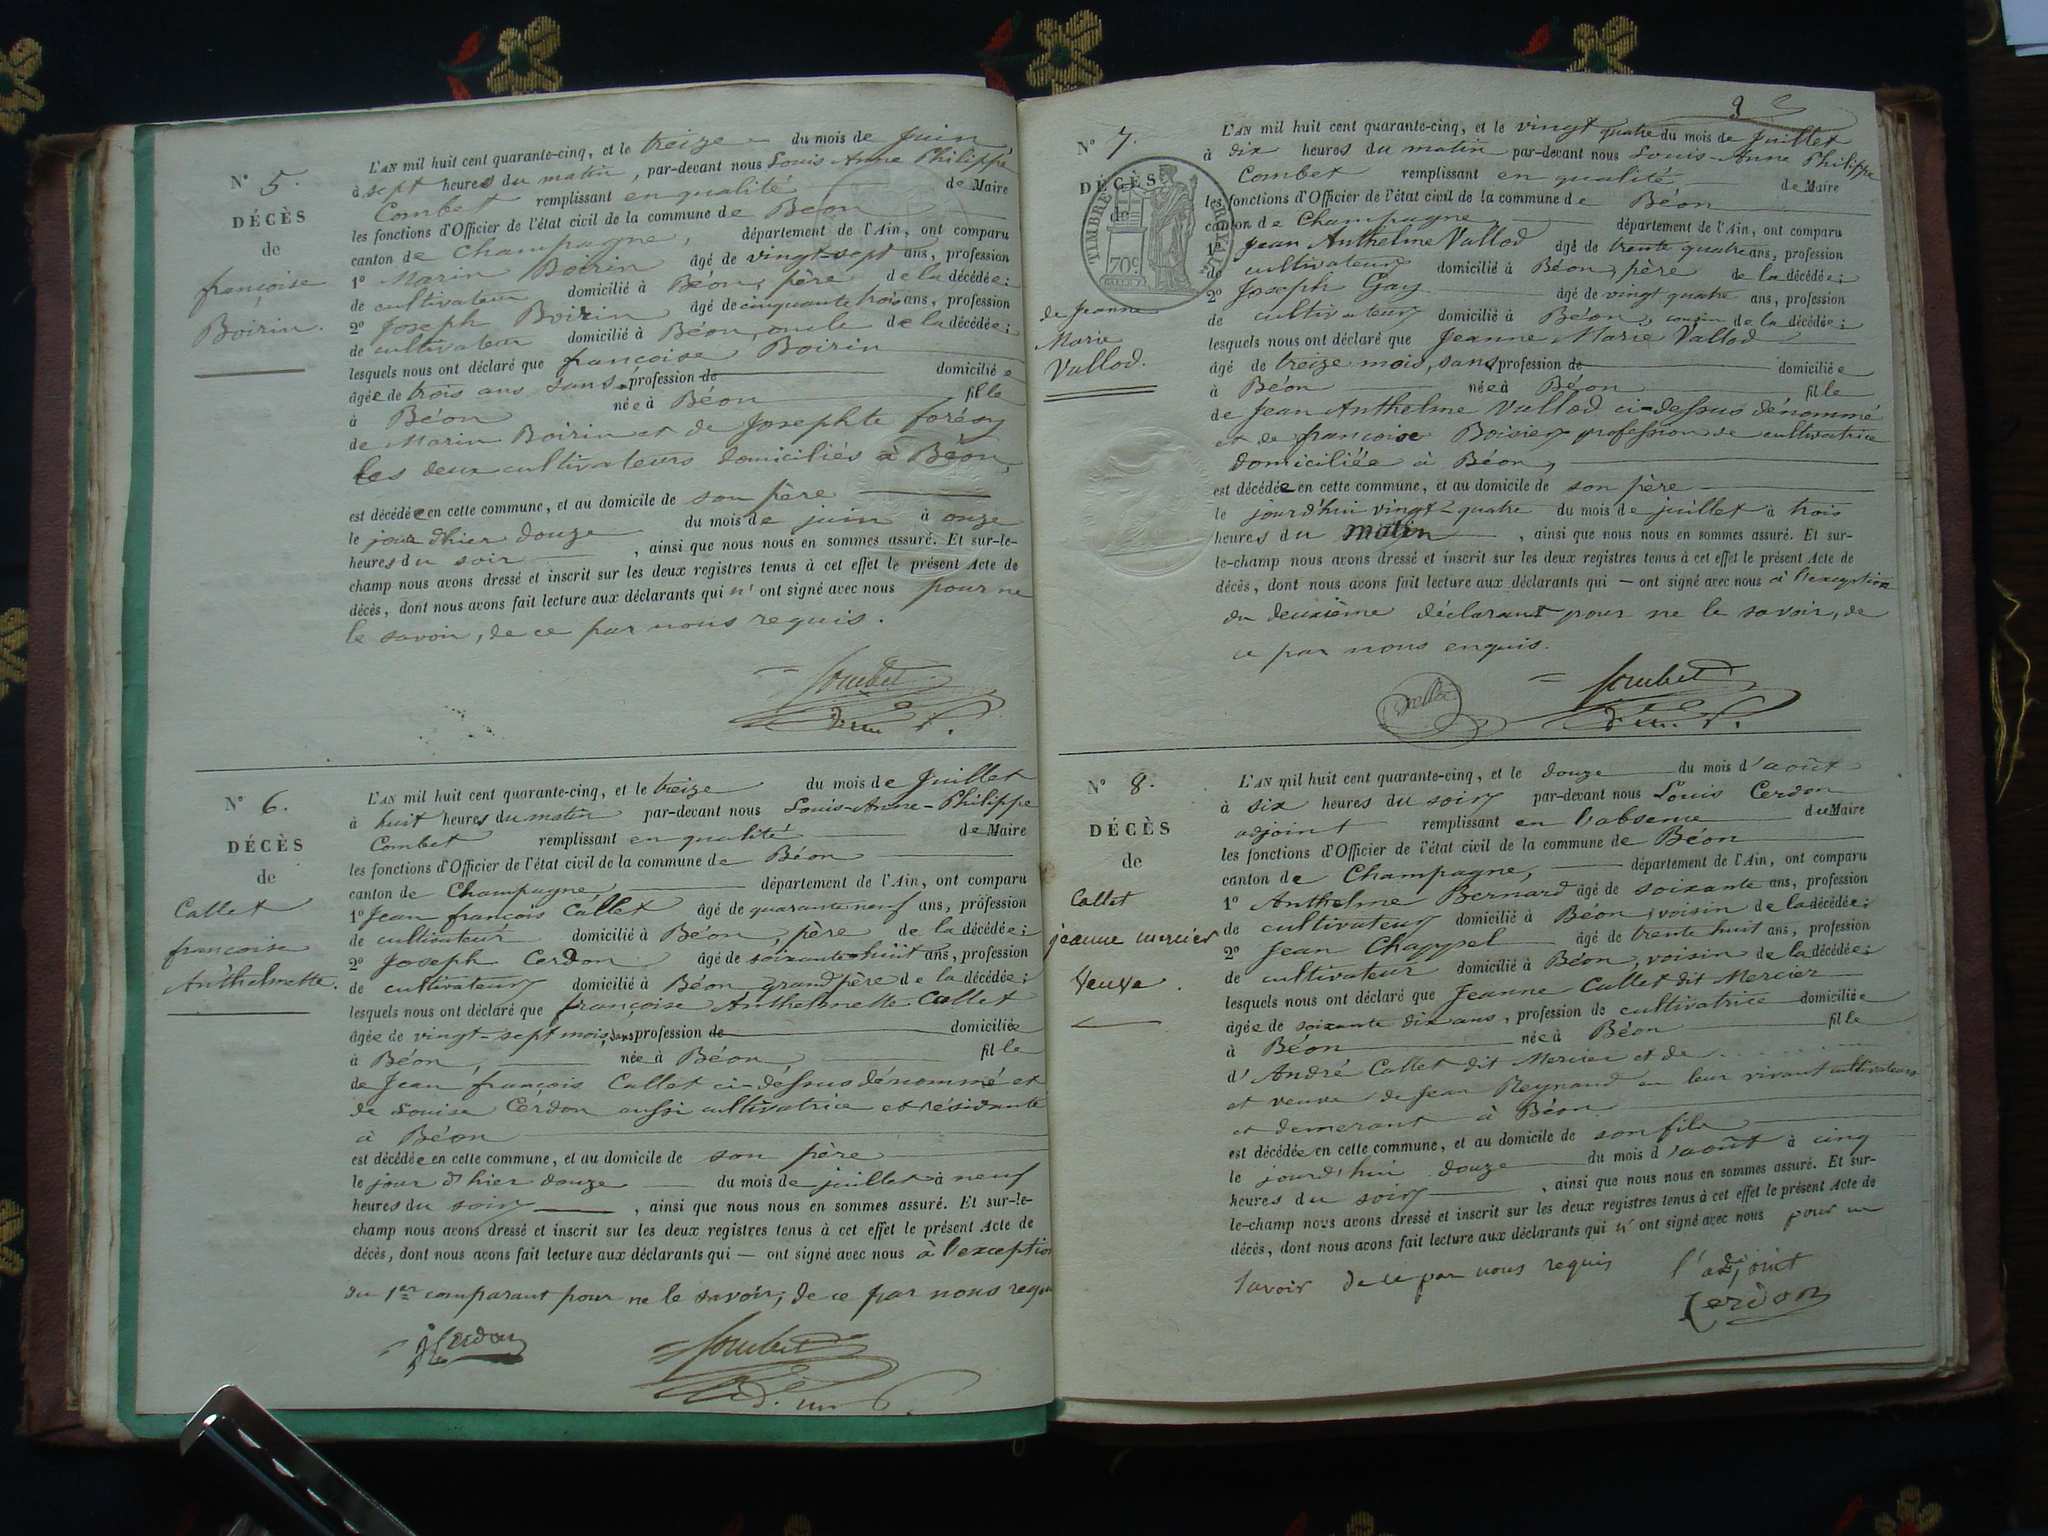 N° 5.
DÉCÈS
de
françoise
Boirin.
L'AN mil huit cent quarante-cinq, et le treize du mois de Juin
à sept heures du matin, par-devant nous Louis Anne Philippe
Combet remplissant en qualité de Maire
les fonctions d'Officier de l'état civil de la commune de Béon
canton de Champagne, département de l'Ain, ont comparu
1° Marin Boirin âgé de vingt-sept ans, profession
de cultivateur domicilié à Béon, père de la décédée;
2° Joseph Boirin âgé de cinquante trois ans, profession
de cultivateur domicilié à Béon, oncle de la décédée;
lesquels nous ont déclaré que françoise Boirin
âgée de trois ans sans profession de domiciliée
à Béon née à Béon fille
de Marin Boirin et de Josephte forésy
les deux cultivateurs domiciliés à Béon,
est décédée en cette commune, et au domicile de son père
le jour d'hier douze du mois de juin à onze
heures du soir, ainsi que nous nous en sommes assuré. Et sur-le-
champ nous avons dressé et inscrit sur les deux registres tenus à cet effet le présent Acte de
décès, dont nous avons fait lecture aux déclarants qui n'ont signé avec nous pour ne
le savoir, de ce par nous requis.
Combet
N° 6.
DÉCÈS
de
Callet
françoise
Anthelmette.
L'AN mil huit cent quarante-cinq, et le treize du mois de Juillet
à huit heures du matin par-devant nous Louis-Anne-Philippe
Combet remplissant en qualité de Maire
les fonctions d'Officier de l'état civil de la commune de Béon
canton de Champagne, département de l'Ain, ont comparu
1° Jean françois Callet âgé de quarante neuf ans, profession
de cultivateur domicilié à Béon, père de la décédée;
2° Joseph Cerdon âgé de soixante-huit ans, profession
de cultivateur domicilié à Béon grand père de la décédée;
lesquels nous ont déclaré que françoise Anthelmette Callet
âgée de vingt-sept mois, sans profession de domiciliée
à Béon, née à Béon fille
de Jean françois Callet ci-dessus dénommé et
de Louise Cerdon aussi cultivatrice et résidante
à Béon
est décédée en cette commune, et au domicile de son père
le jour d'hier douze du mois de juillet à neuf
heures du soir, ainsi que nous nous en sommes assuré. Et sur-le-
champ nous avons dressé et inscrit sur les deux registres tenus à cet effet le présent Acte de
décès, dont nous avons fait lecture aux déclarants qui — ont signé avec nous à l'exception
du 1er comparant pour ne le savoir, de ce par nous
Cerdon Combet
N° 7.
DÉCÈS
de
TIMBRE ROYAL
70c
de Jeanne
Marie
Vallod.
L'AN mil huit cent quarante-cinq, et le vingt quatre du mois de Juillet
à dix heures du matin par-devant nous Louis-Anne Philippe
Combet remplissant en qualité de Maire
les fonctions d'Officier de l'état civil de la commune de Béon
canton de Champagne département de l'Ain, ont comparu
1° Jean Anthelme Vallod âgé de trente quatre ans, profession
de cultivateur domicilié à Béon, père de la décédée;
2° Joseph Gay âgé de vingt quatre ans, profession
de cultivateur domicilié à Béon, cousin de la décédée;
lesquels nous ont déclaré que Jeanne Marie Vallod
âgé de treize mois, sans profession de domiciliée
à Béon née à Béon fille
de Jean Anthelme Vallod ci-dessus dénommé
et de françoise Boirier profession de cultivatrice
domiciliée à Béon,
est décédée en cette commune, et au domicile de son père
le jourd'hui vingt quatre du mois de juillet à trois
heures du matin, ainsi que nous nous en sommes assuré. Et sur-
le-champ nous avons dressé et inscrit sur les deux registres tenus à cet effet le présent Acte de
décès, dont nous avons fait lecture aux déclarants qui — ont signé avec nous à l'exception
du deuxième déclarant pour ne le savoir, de
ce par nous enquis.
Combet
N° 8.
DÉCÈS
de
Callet
jeanne mercier
Veuve.
L'AN mil huit cent quarante-cinq, et le douze du mois d'août
à six heures du soir par-devant nous Louis Cerdon
adjoint remplissant en l'absence du Maire
les fonctions d'Officier de l'état civil de la commune de Béon
canton de Champagne, département de l'Ain, ont comparu
1° Anthelme Bernard âgé de soixante ans, profession
de cultivateur domicilié à Béon, voisin de la décédée;
2° Jean Chappel âgé de trente huit ans, profession
de cultivateur domicilié à Béon, voisin de la décédée;
lesquels nous ont déclaré que Jeanne Callet dit Mercier
âgée de soixante dix ans, profession de cultivatrice domiciliée
à Béon née à Béon fille
d'André Callet dit Mercier et de
et veuve de Jean Reynaud en leur vivant cultivateurs
et demerant à Béon
est décédée en cette commune, et au domicile de son fils
le jourd'hui douze du mois d'août à cinq
heures du soir, ainsi que nous nous en sommes assuré. Et sur-
le-champ nous avons dressé et inscrit sur les deux registres tenus à cet effet le présent Acte de
décès, dont nous avons fait lecture aux déclarants qui n'ont signé avec nous pour ne
savoir de ce par nous requis l'adjoint
Cerdon